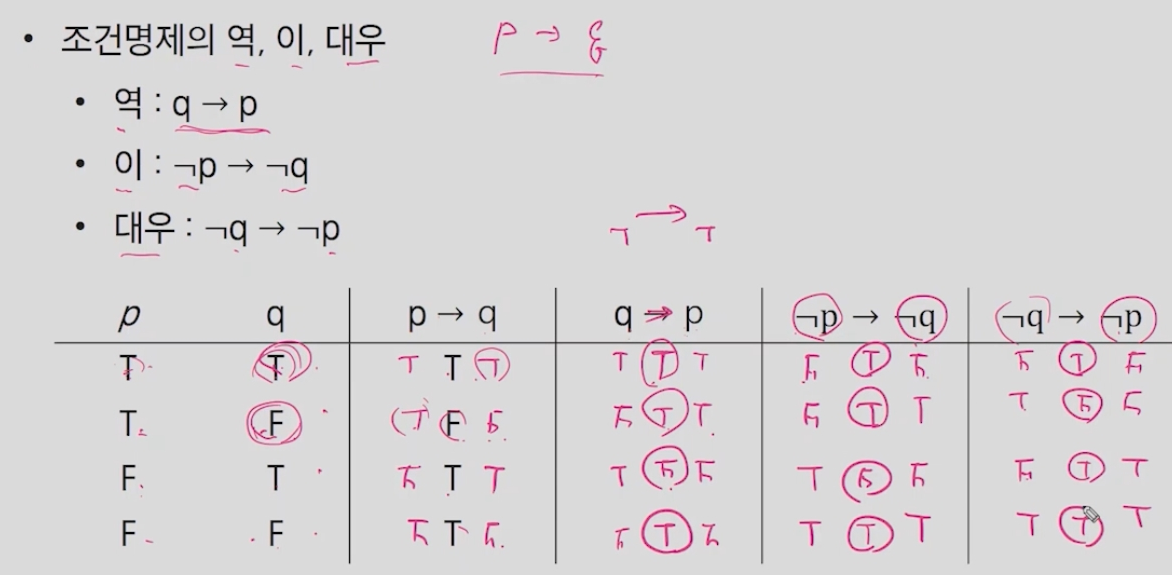 • 조건명제의 역, 이, 대우 p → q
• 역 : q → p
• 이 : ¬p → ¬q
• 대우 : ¬q → ¬p
¬ → ¬
p q p → q q → p ¬p → ¬q ¬q → ¬p
T T T T T T T T F T F F T F
T F T F F F T T F T T T F F
F T F T T T F F T F F F T T
F F F T F F T F T T T T T T